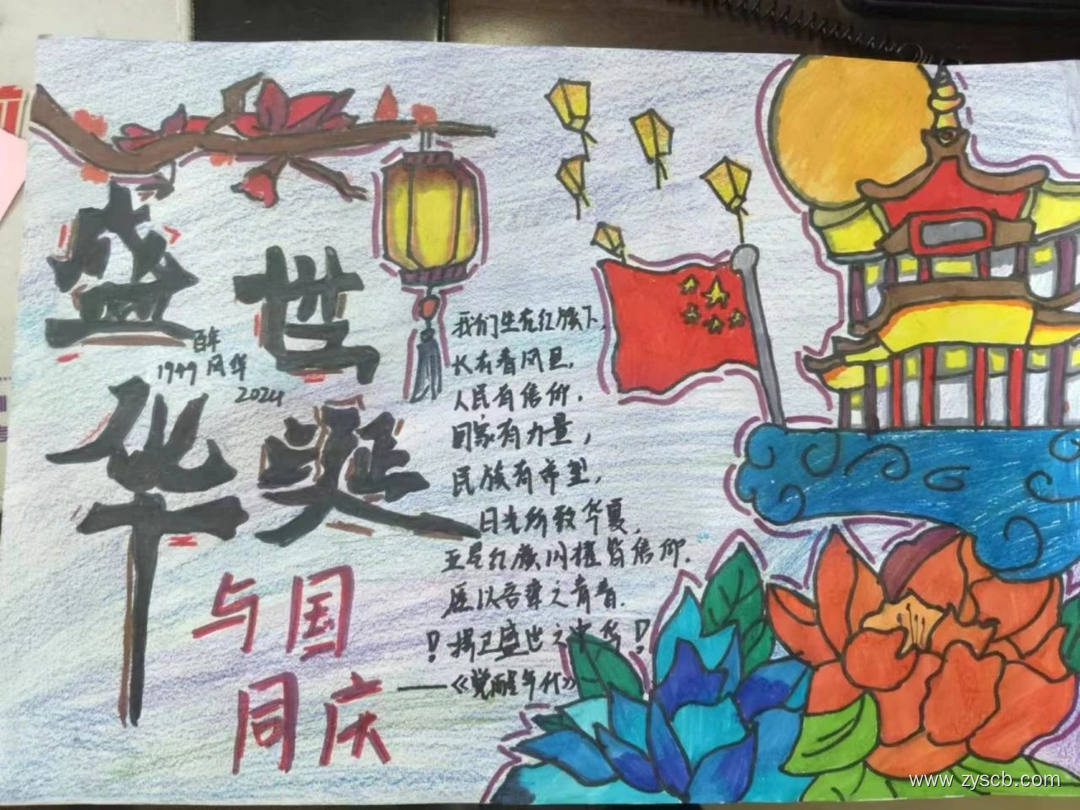 盛世
百年
1949 风华
2024
华诞
与国
同庆
我们生在红旗下,
长在春风里,
人民有信仰,
国家有力量,
民族有希望,
目光所致华夏,
五星红旗闪耀皆信仰.
愿以吾辈之青春.
!捍卫盛世之中华!
——《觉醒年代》
www.zyscb.com